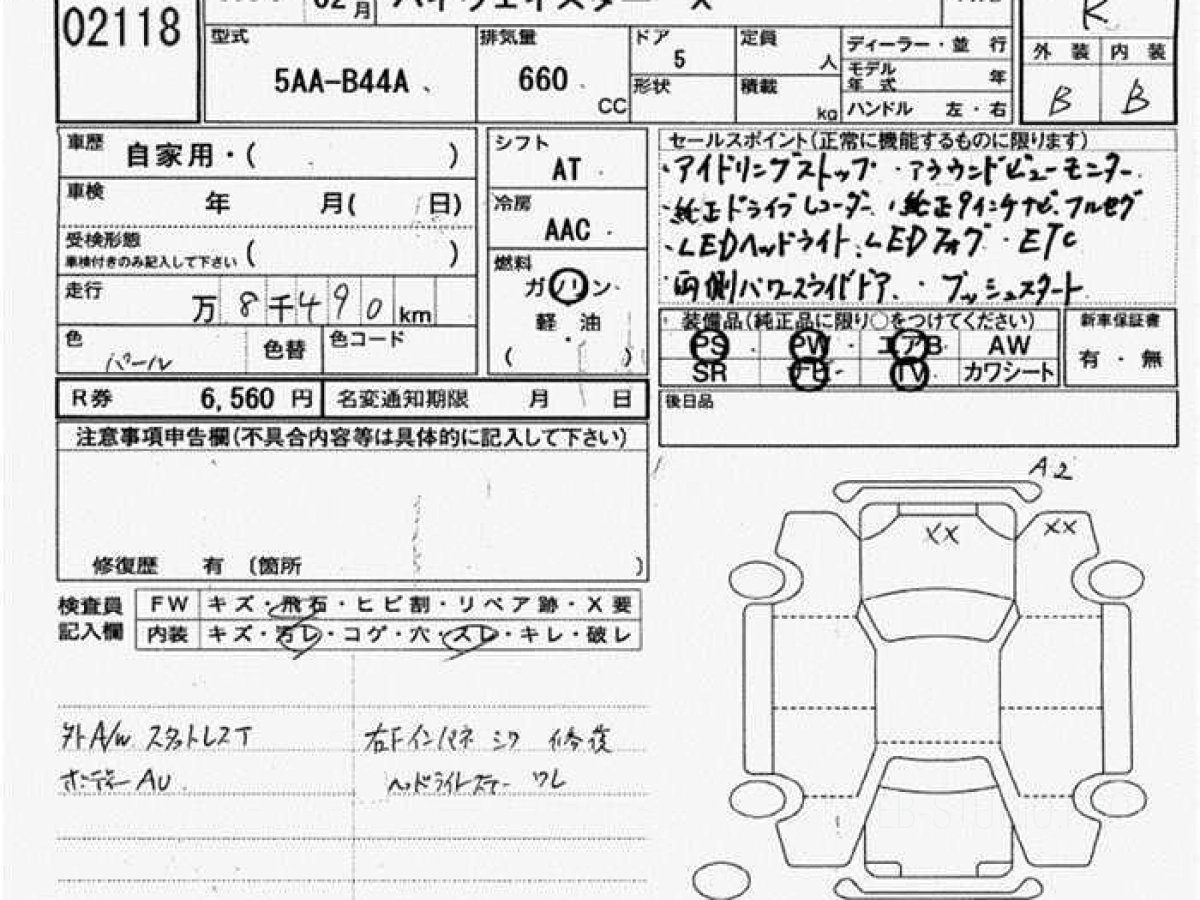 02月 ハイウェイスター X
02118
R
型式 5AA-B44A
排気量 660 CC
ドア 5
形状
定員 人
積載 kg
ディーラー・並 行
モデル年式 年
ハンドル 左・右
外 装 内 装
B B
車歴 自家用・( )
車検 年 月( 日)
受検形態 ( )
車検付きのみ記入して下さい
走行 万 8千490 km
色 パール 色替 色コード
シフト AT
冷房 AAC
燃料
ガソリン
軽 油
( )
セールスポイント(正常に機能するものに限ります)
・アイドリングストップ ・アラウンドビューモニター
・純正ドライブレコーダー ・純正9インチナビ.フルセグ
・LEDヘッドライト・LEDフォグ・ETC
・両側パワースライドドア ・プッシュスタート
装備品(純正品に限り○をつけてください)
PS PW エアB AW
SR ナビ TV カワシート
新車保証書
有 ・ 無
R券 6,560 円 名変通知期限 月 日
後日品
注意事項申告欄(不具合内容等は具体的に記入して下さい)
修復歴 有 〔箇所 〕
検査員記入欄
FW キズ・飛石・ヒビ割・リペア跡・X要
内装 キズ・汚レ・コゲ・穴・スレ・キレ・破レ
外A/W スタットレスT
ボディーAU
右Fインパネ シワ 修復
ヘッドライトステー ワレ
A2
XX XX